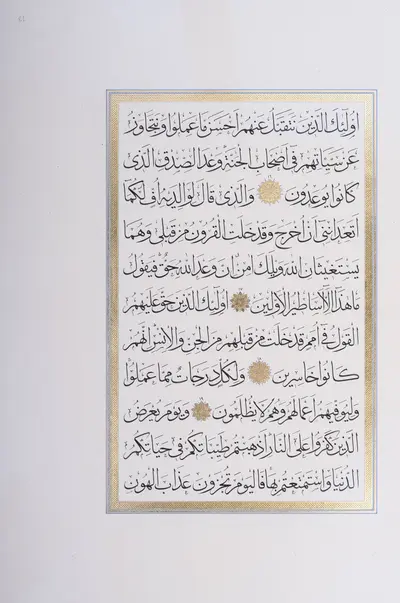 اولئك الذين نتقبل عنهم احسن ما عملوا ونتجاوز
عن سيئاتهم في أصحاب الجنة وعد الصدق الذي
كانوا يوعدون والذي قال لوالديه أف لكما
أتعدانني أن أخرج وقد خلت القرون من قبلي وهما
يستغيثان الله ويلك امن ان وعد الله حق فيقول
ما هذا إلا أساطير الأولين أولئك الذين حق عليهم
القول في أمم قد خلت من قبلهم من الجن والإنس إنهم
كانوا خاسرين ولكل درجات مما عملوا
وليوفيهم أعمالهم وهم لا يظلمون ويوم يعرض
الذين كفروا على النار أذهبتم طيباتكم في حياتكم
الدنيا واستمتعتم بها فاليوم تجزون عذاب الهون